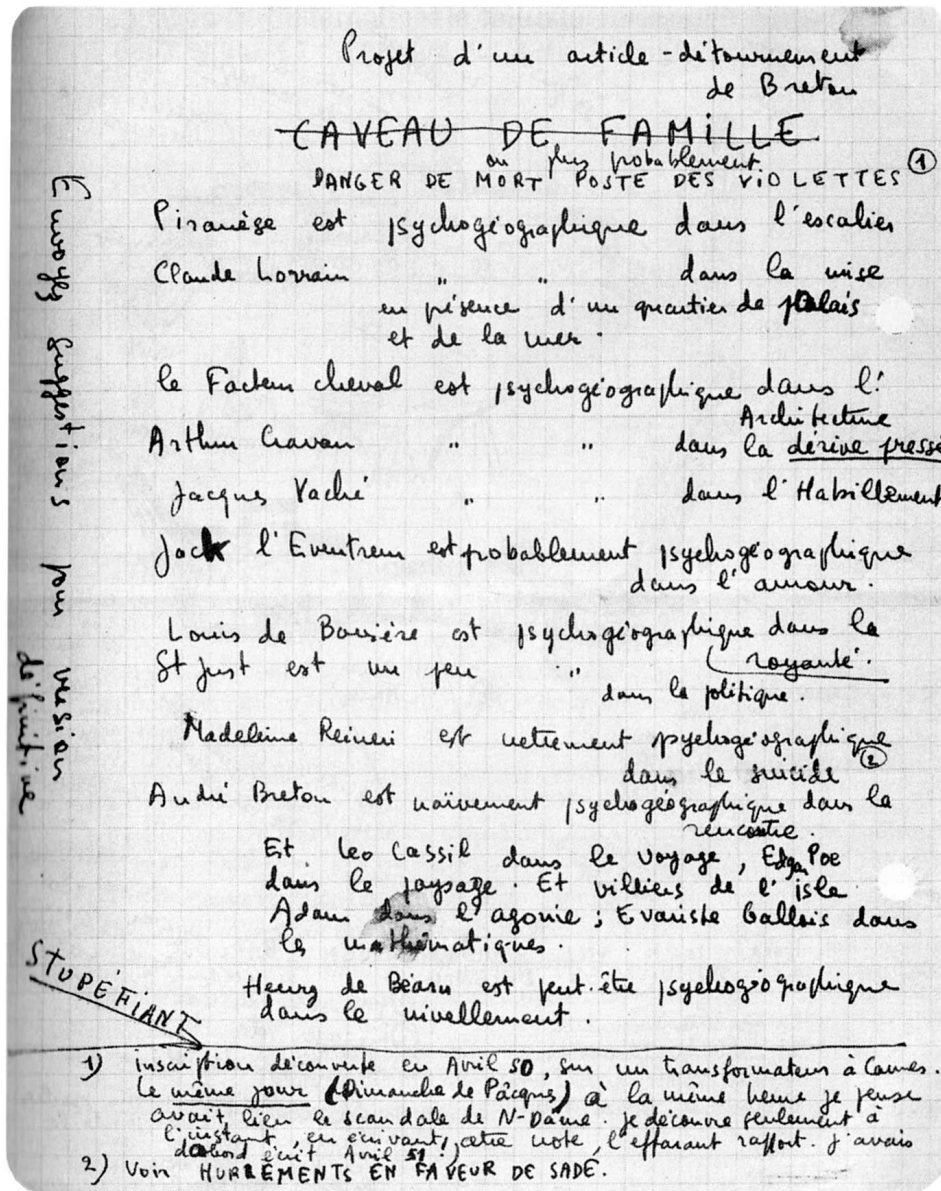 Projet d'un article-détournement
de Breton
CAVEAU DE FAMILLE
ou plus probablement
DANGER DE MORT POSTE DES VIOLETTES ①
Piranèse est psychogéographique dans l'escalier
Claude Lorrain " " dans la mise
en présence d'un quartier de palais
et de la mer.
le Facteur cheval est psychogéographique dans l'
Architecture
Arthur Cravan " " dans la dérive pressé
Jacques Vaché " " dans l'Habillement
Jack l'Eventreur est probablement psychogéographique
dans l'amour.
Louis de Bavière est psychogéographique dans la
royauté.
St Just est un peu "
dans la politique.
Madeleine Reineri est nettement psychogéographique
dans le suicide ②
André Breton est naïvement psychogéographique dans la
rencontre.
Et leo Cassil dans le voyage, Edgar Poe
dans le paysage. Et villiers de l'isle
Adam dans l'agonie ; Evariste Gallois dans
les mathématiques.
Henry de Béarn est peut-être psychogéographique
dans le nivellement.
Envoyez suggestions pour version
définitive
STUPÉFIANT
1) inscription découverte en Avril 50, sur un transformateur à Cannes.
Le même jour (Dimanche de Pâques) à la même heure je pense
avait lieu le scandale de N-Dame. je découvre seulement à
l'instant, en écrivant cette note, l'effarant rapport. j'avais
d'abord écrit Avril 51 !)
2) Voir HURLEMENTS EN FAVEUR DE SADE.